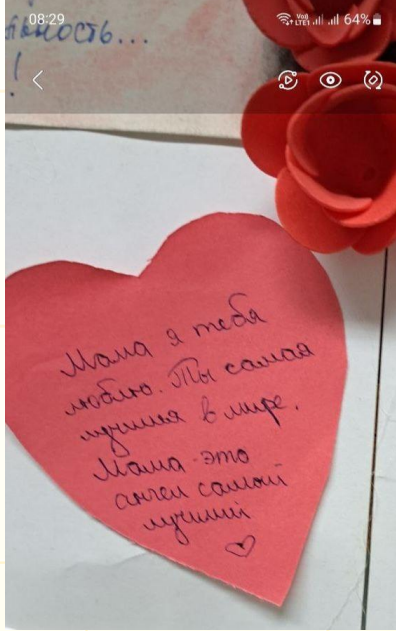 08:29
VoLTE1 64%
ность...
!
Мама я тебя
люблю. Ты самая
лучшая в мире.
Мама - это
ангел самый
лучший